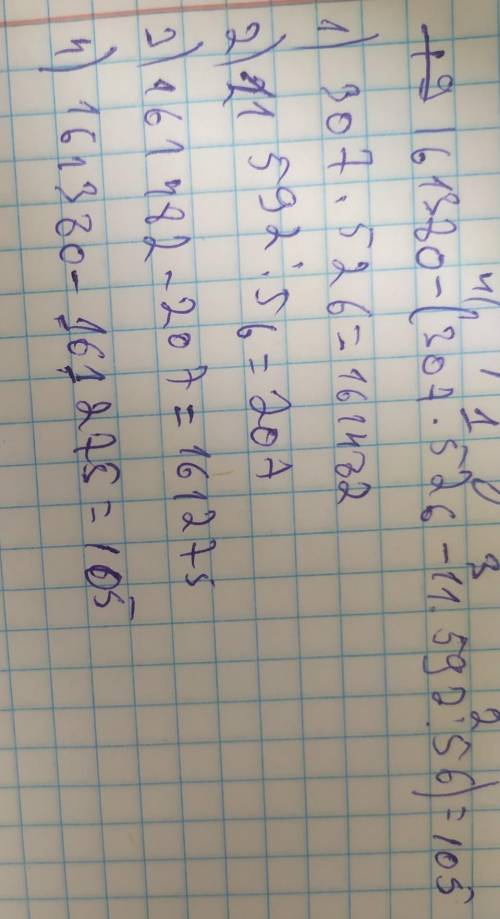 4 1 3 2
+9 161380-(307·526-11.592:56)=105
1) 307·526=161482
2) 11 592:56=207
3) 161482-207=161275
4) 161380-161275=105